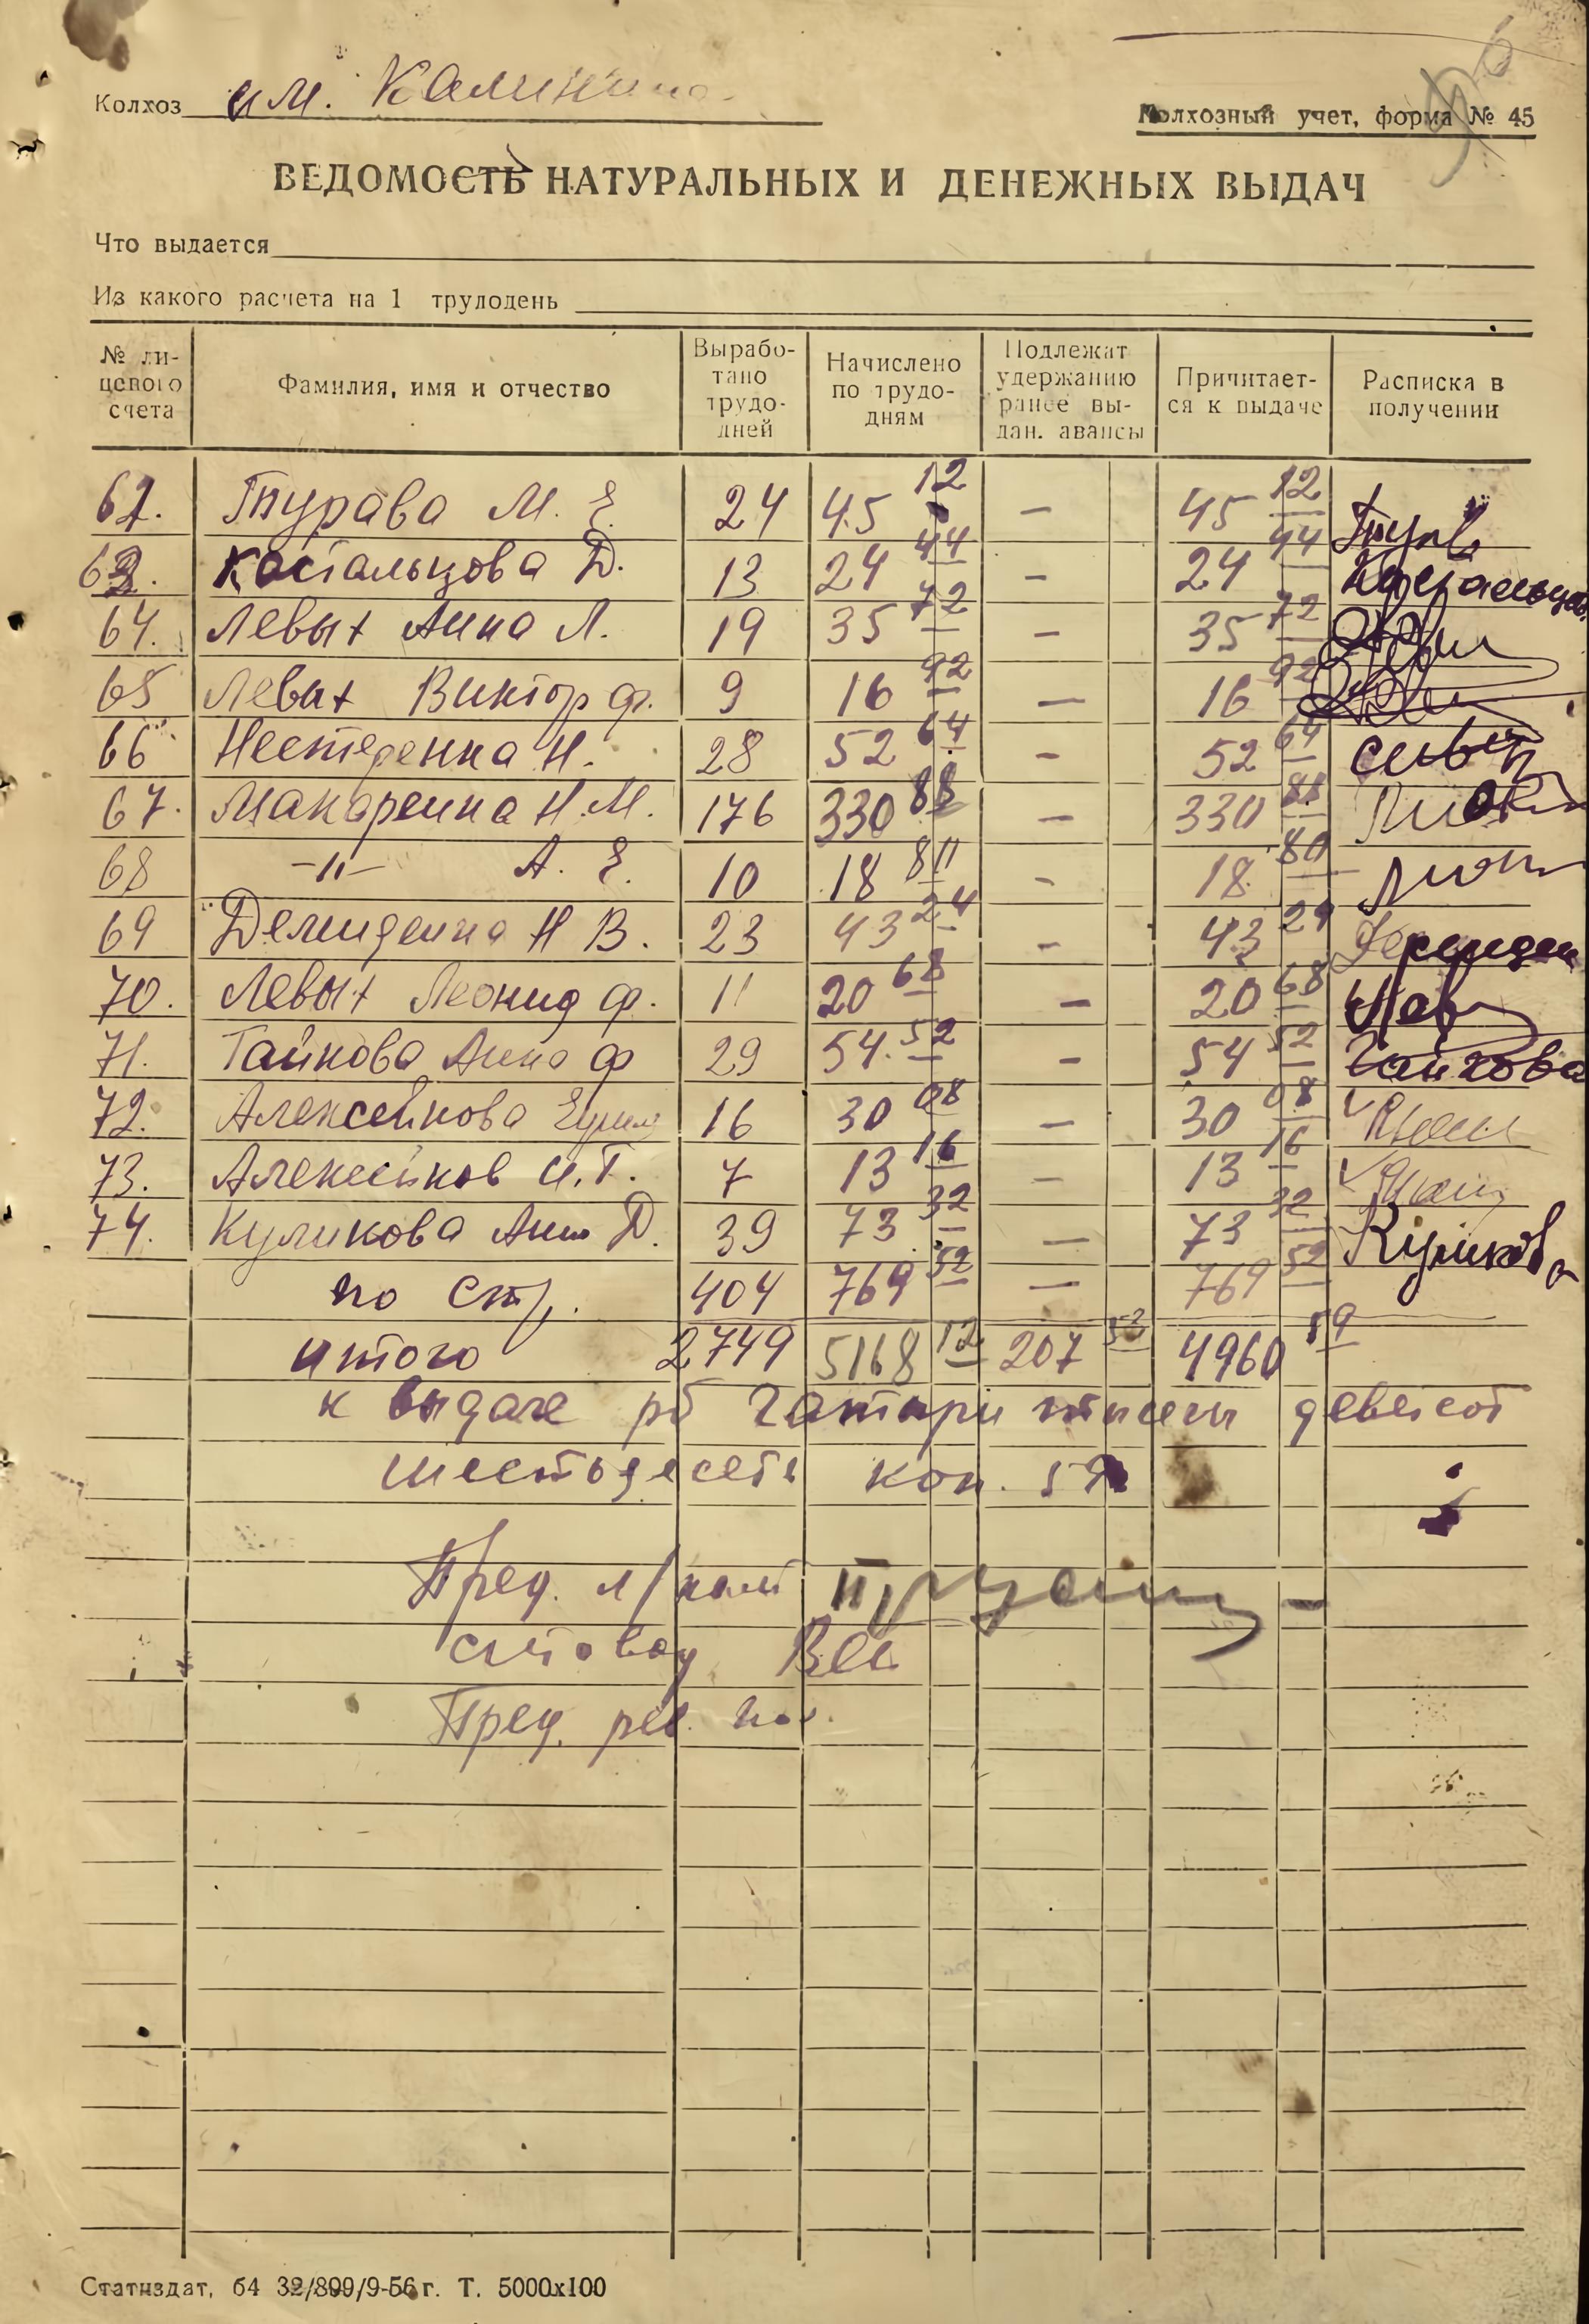 Колхоз им. Калинина
Колхозный учет, форма № 45
ВЕДОМОСТЬ НАТУРАЛЬНЫХ И ДЕНЕЖНЫХ ВЫДАЧ
Что выдается
Из какого расчета на 1 трудодень
№ ли-цевого счета Фамилия, имя и отчество Вырабо-тано трудо-дней Начислено по трудо-дням Подлежат удержанию ранее вы-дан. авансы Причитает-ся к выдаче Расписка в получении
62. Турава М. Е. 24 45 12 — 45 12
63. Костальцова Д. 13 24 44 — 24 44
64. Левых Анна Л. 19 35 72 — 35 72
65 Левых Виктор Ф. 9 16 92 — 16 92
66 Нестеренка Н. 28 52 64 — 52 64
67. Макаренка Н. М. 176 330 88 — 330 88
68 —"— А. Е. 10 18 80 — 18 80
69 Демиденка Н В. 23 43 24 — 43 24
70. Левых Леонид Ф. 11 20 68 — 20 68 Лев
71. Гайкова Анна Ф 29 54 52 — 54 52 Гайкова
72. Алексейкова 16 30 08 — 30 08
73. Алексейков И. Г. 7 13 16 — 13 16
74. Куликова Анна Д. 39 73 32 — 73 32 Куликова
по стр. 404 769 52 — 769 52
итого 2749 5168 12 207 53 4960 59
к выдаче рб Чатыри тысечи девятсот
шестьдесеть коп. 59
Пред. л/кам
счтовод
Пред. рев. ком.
Статиздат, б4 32/899/9-56 г. Т. 5000х100